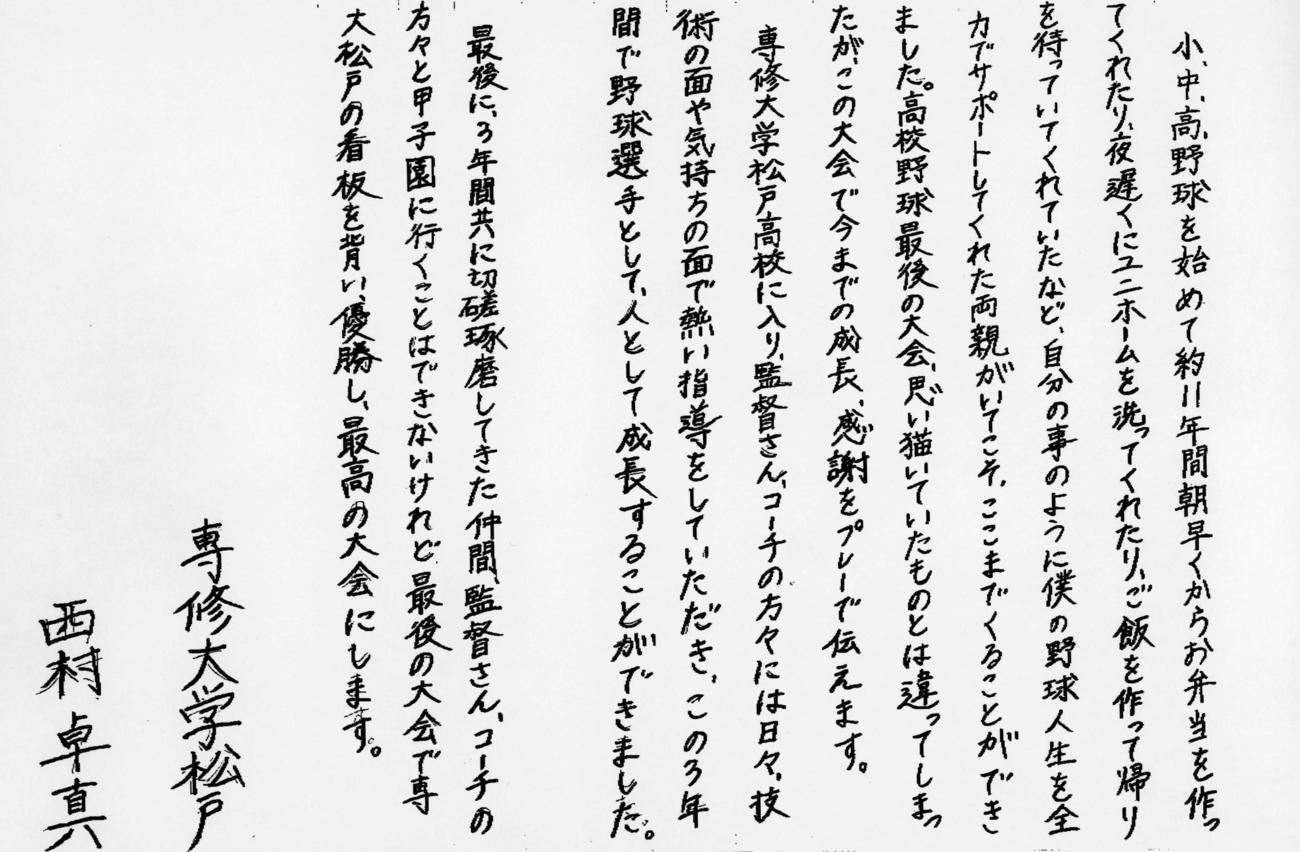 小、中、高、野球を始めて約11年間朝早くからお弁当を作っ
てくれたり、夜遅くにユニホームを洗ってくれたり、ご飯を作って帰り
を待っていてくれていたなど、自分の事のように僕の野球人生を全
力でサポートしてくれた両親がいてこそ、ここまでくることができ
ました。高校野球最後の大会、思い猫いていたものとは違ってしまっ
たが、この大会で今までの成長、感謝をプレーで伝えます。
専修大学松戸高校に入り、監督さん、コーチの方々には日々、技
術の面や気持ちの面で熱い指導をしていただき、この3年
間で野球選手として、人として成長することができました。
最後に、3年間共に切磋琢磨してきた仲間、監督さん、コーチの
方々と甲子園に行くことはできないけれど最後の大会で専
大松戸の看板を背い、優勝し、最高の大会にします。
専修大学松戸
西村卓真